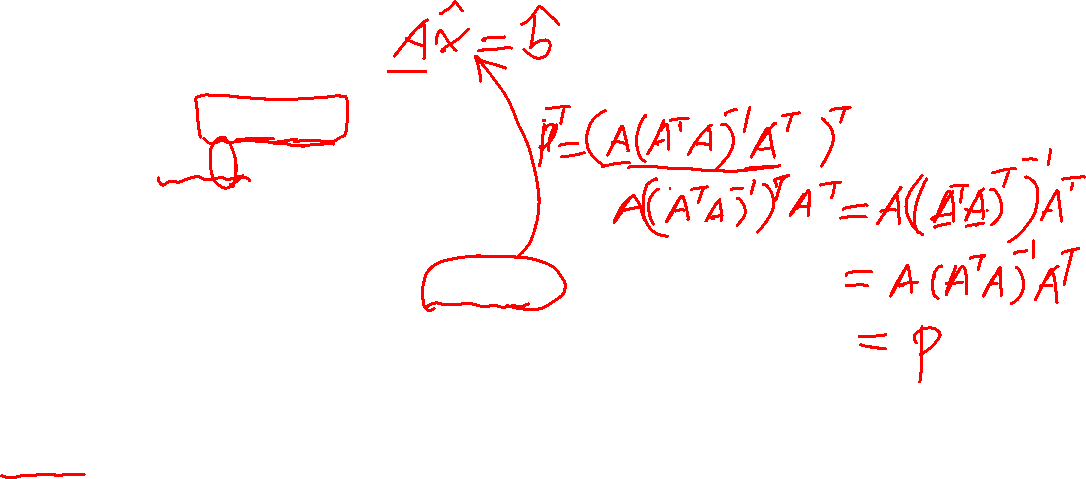 Ax̂ = b̂
P^T = (A(A^T A)^-1 A^T)^T
A((A^T A)^-1)^T A^T = A((A^T A)^T)^-1 A^T
= A(A^T A)^-1 A^T
= P